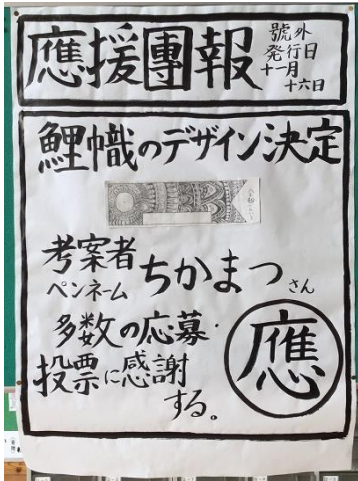 應援團報
號外
発行日
十一月
十六日
鯉幟のデザイン決定
考案者
ペンネーム
ちかまつ
さん
多数の応募・
投票に感謝
する。
應